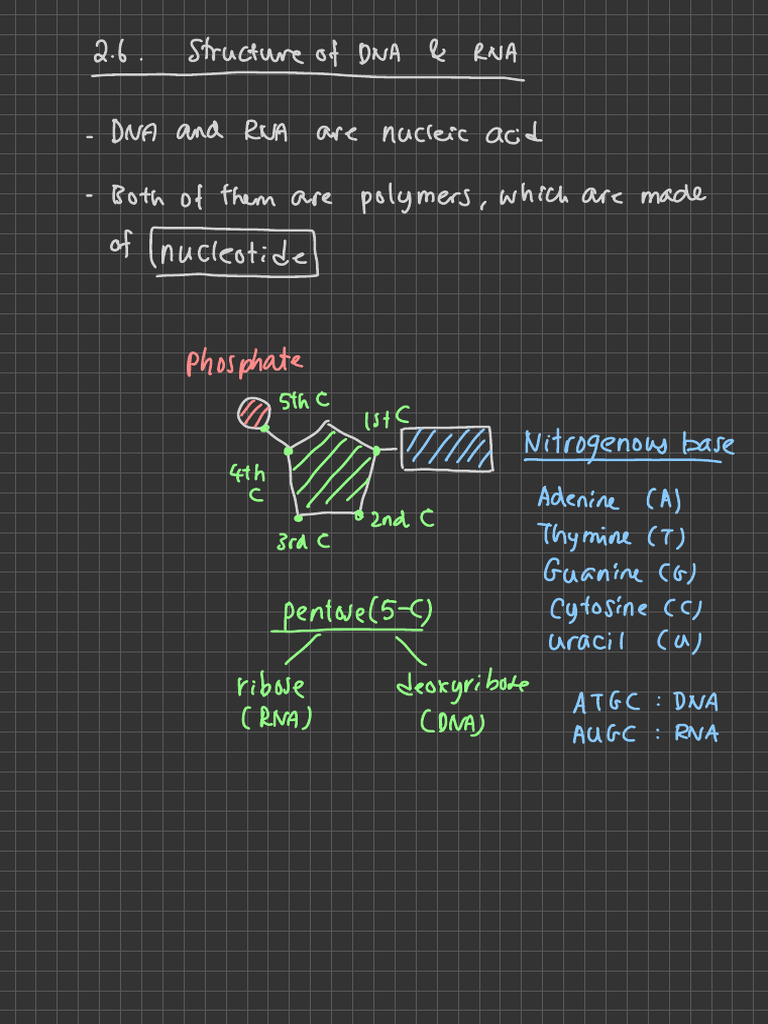 2.6. Structure of DNA & RNA
- DNA and RNA are nucleic acid
- Both of them are polymers, which are made
of nucleotide
Phosphate
5th C
1st C
Nitrogenous base
4th
C
Adenine (A)
2nd C
Thymine (T)
3rd C
Guanine (G)
pentose (5-C)
Cytosine (C)
uracil (u)
ribose
deoxyribose
(RNA)
(DNA)
ATGC : DNA
AUGC : RNA